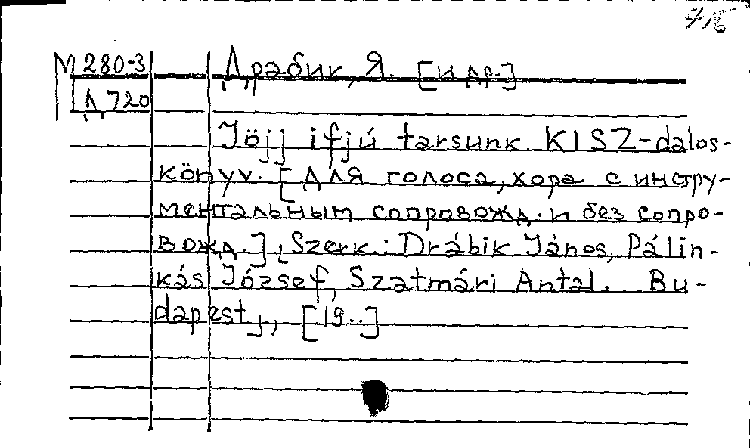 М 280-3 Драбик, Я. [и др.]
Д 720
Jöjj ifjú tarsunk KISZ-dalos-
könyv. [Для голоса, хора с инстру-
ментальным сопровожд. и без сопро-
вожд.], Szerk.: Drábik János, Pálin-
kás József, Szatmári Antal. Bu-
dapest, [19..]